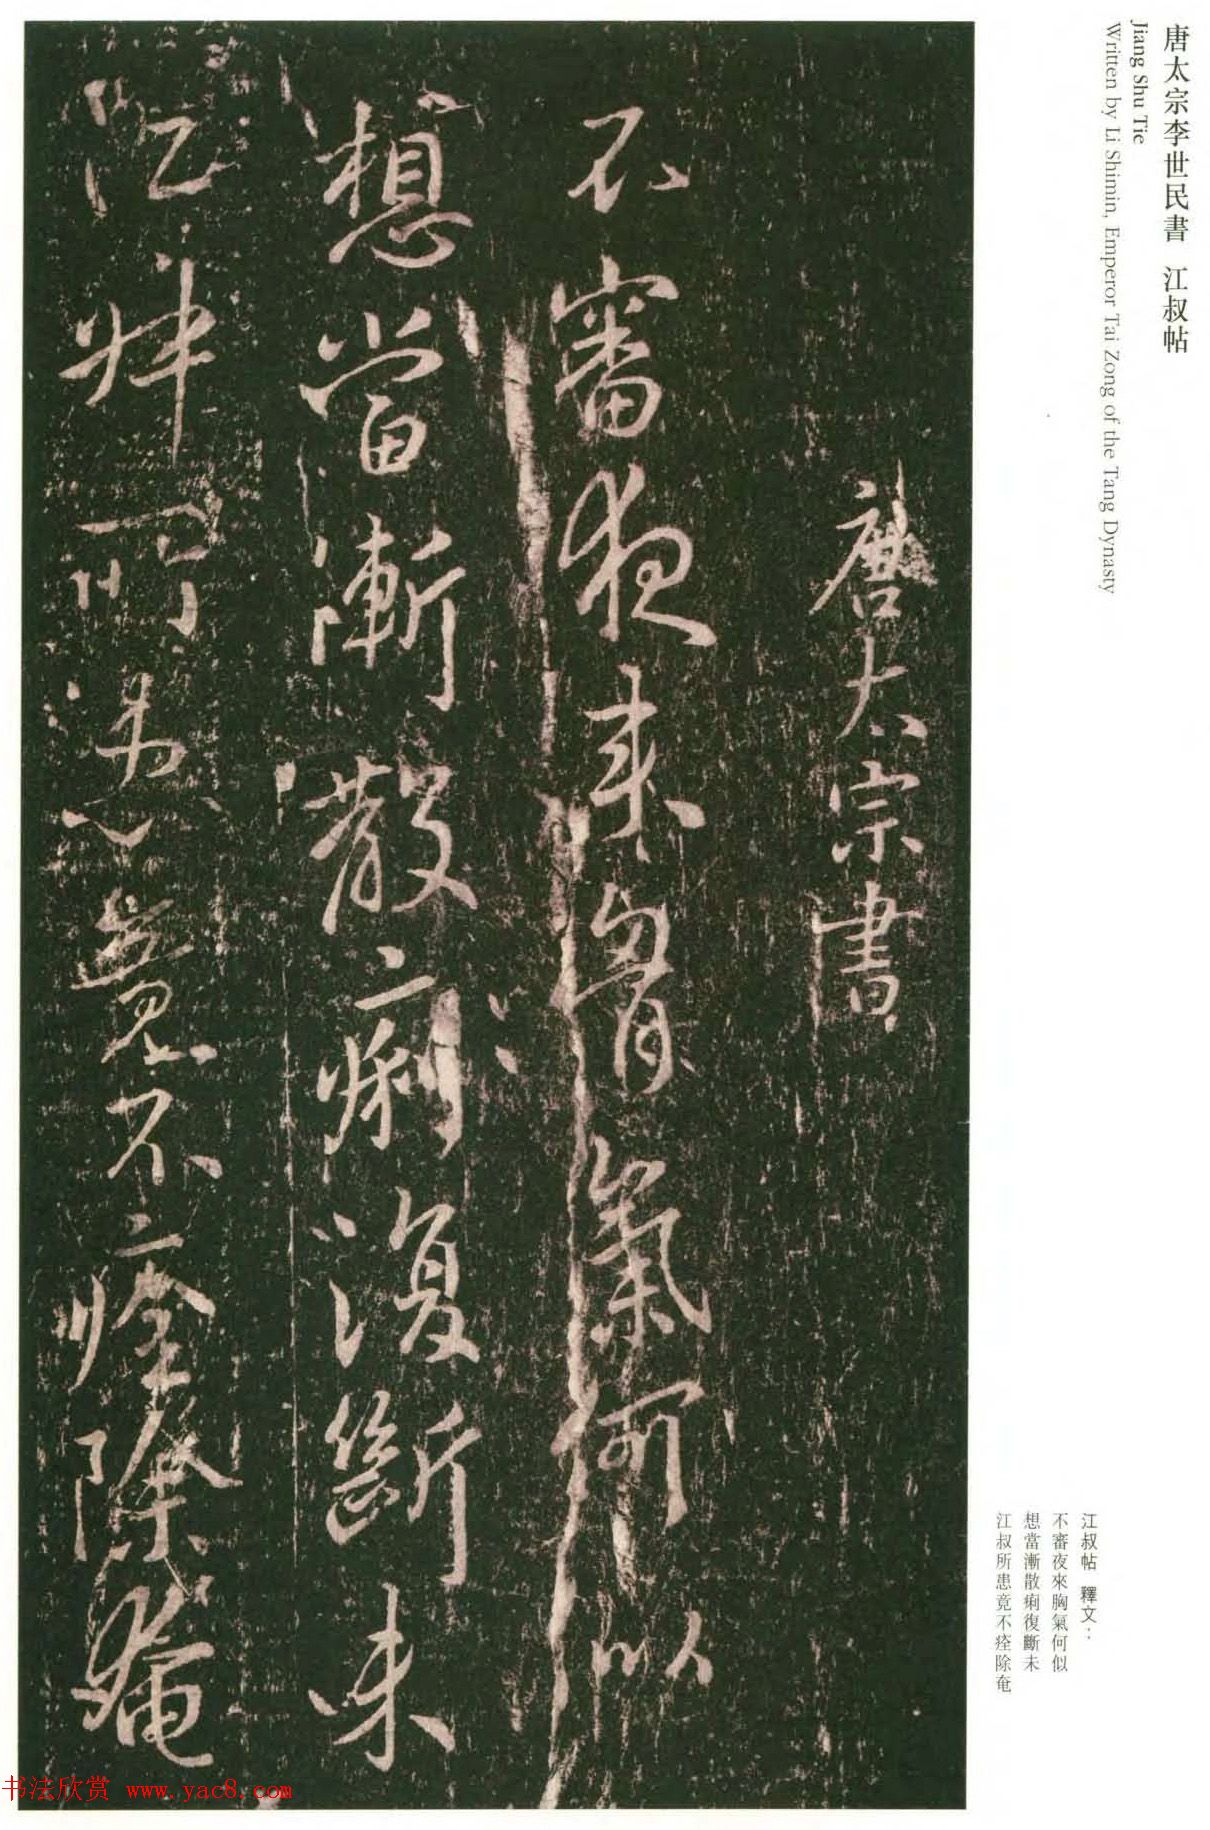 唐太宗李世民書 江叔帖
Jiang Shu Tie
Written by Li Shimin, Emperor Tai Zong of the Tang Dynasty
唐太宗書
不審夜來胸氣何似
想當漸散痢復斷未
江叔所患竟不痊除奄
江叔帖 釋文：
不審夜來胸氣何似
想當漸散痢復斷未
江叔所患竟不痊除奄
书法欣赏 www.yac8.com